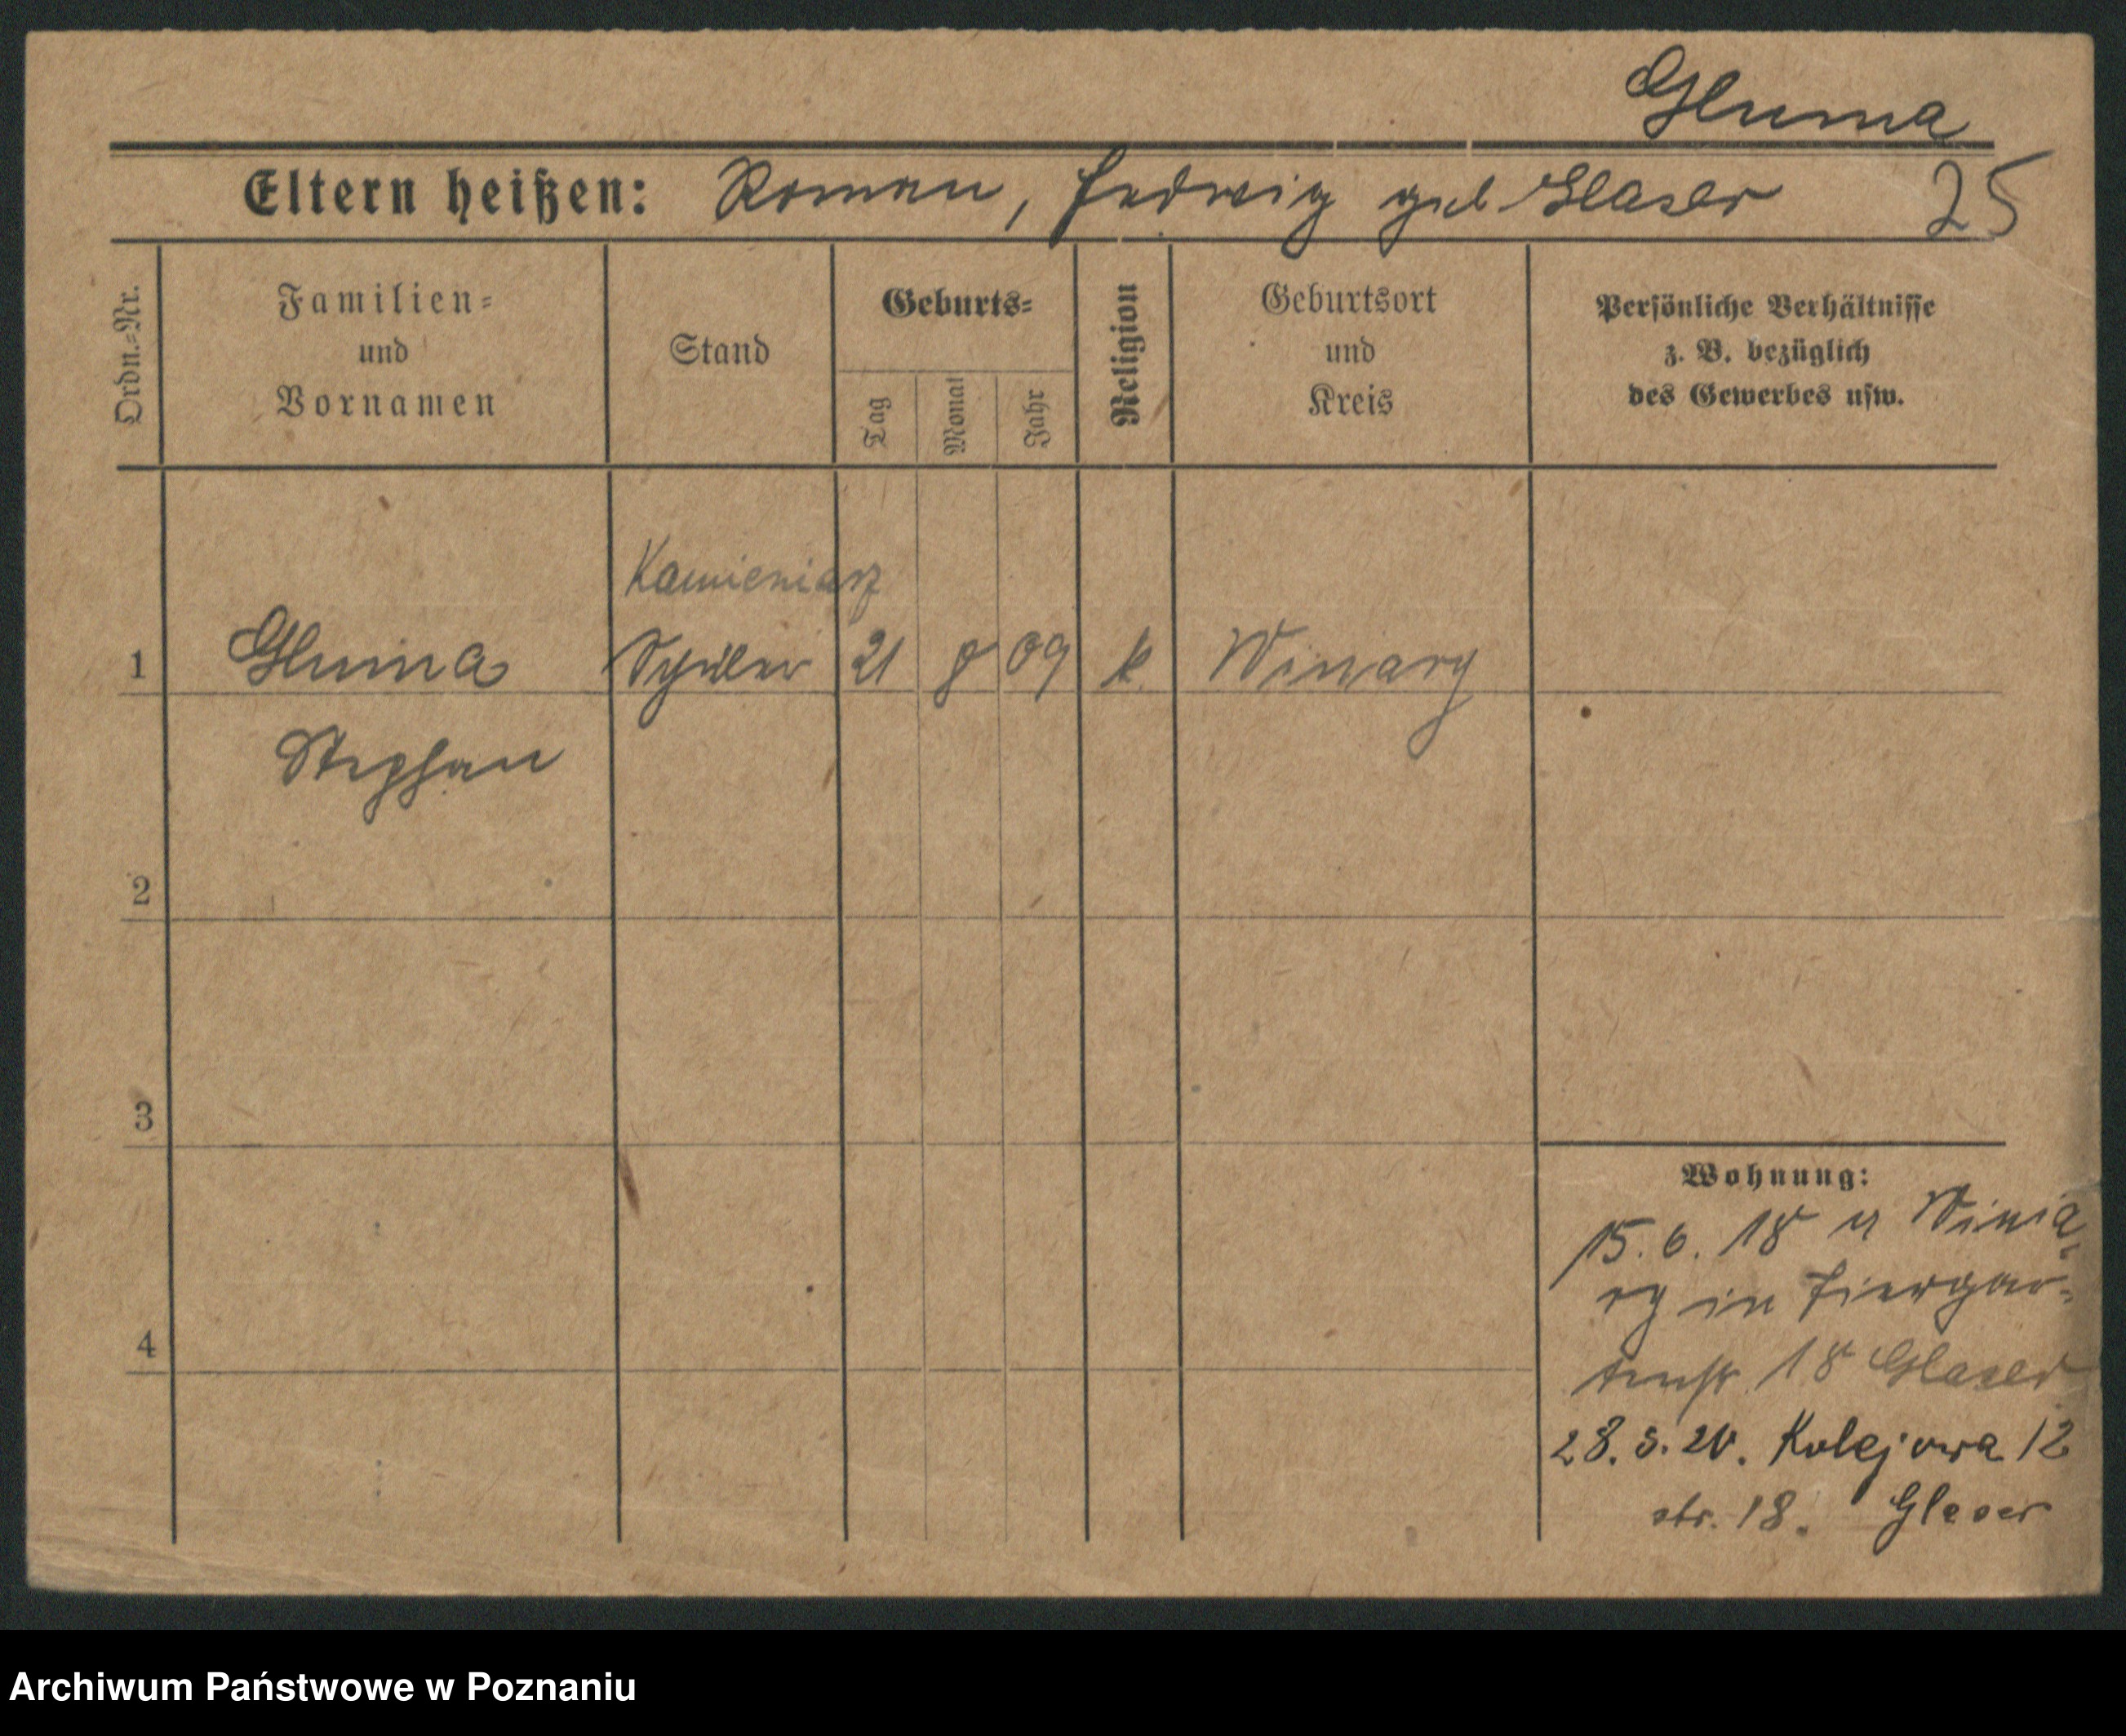 Gluma
Eltern heißen: Roman, Hedwig geb Glaser 25
Ordn.=Nr.
Familien=
und
Vornamen
Stand
Geburts=
Tag
Monat
Jahr
Religion
Geburtsort
und
Kreis
Persönliche Verhältnisse
z. B. bezüglich
des Gewerbes usw.
Kamieniarz
1 Gluma Schüler 21 8 09 k Winiary
Stephan
2
3
4
Wohnung:
15.6.18 Winia-
ry in Tiergar-
tenstr. 18 Glaser
28.5.20. Kolejowa 12
str. 18. Glaser
Archiwum Państwowe w Poznaniu